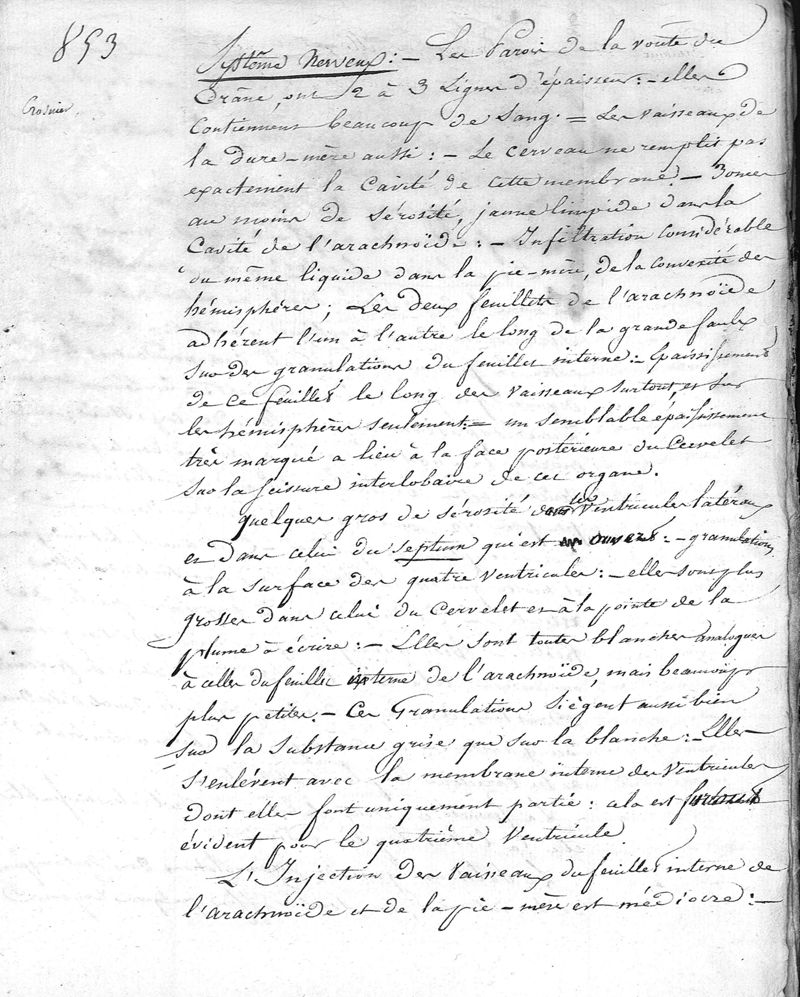 853
Crosnier
Système Nerveux : – Les Parois de la voûte du
Crâne, ont 2 à 3 Lignes d'épaisseur : – elles
Contiennent beaucoup de Sang. = Les vaisseaux de
la dure-mère aussi : – Le cerveau ne remplit pas
exactement la Cavité de cette membrane. – 3 onces
au moins de Sérosité, jaune limpide dans la
Cavité de l'arachnoïde : – Infiltration Considérable
du même liquide dans la pie-mère, de la convexité des
hémisphères ; Les deux feuillets de l'arachnoïde
adhérent l'un à l'autre le long de la grande faulx
Sur des granulations du feuillet interne : – Epaississement
de ce feuillet le long des vaisseaux surtout, et Sur
les hémisphères seulement = un semblable épaississement
très marqué a lieu à la face postérieure du Cervelet
Sur la scissure interlobaire de cet organe.
quelques gros de sérosité les Ventricules latéraux
et dans celui du septum qui est ouvert : – granulations
à la surface des quatre Ventricules : – elles sont plus
grosses dans celui du Cervelet et à la pointe de la
plume à écrire : – Elles sont toutes blanches analogues
à celles du feuillet interne de l'arachnoïde, mais beaucoup
plus petites. – Ces Granulations Siègent aussi bien
Sur la Substance grise que sur la blanche : – Elles
s'enlévent avec la membrane interne des Ventricules
dont elles font uniquement partie : cela est
évident pour le quatrième Ventricule.
L'Injection des Vaisseaux du feuillet interne de
l'arachnoïde et de la pie-mère est médiocre : –